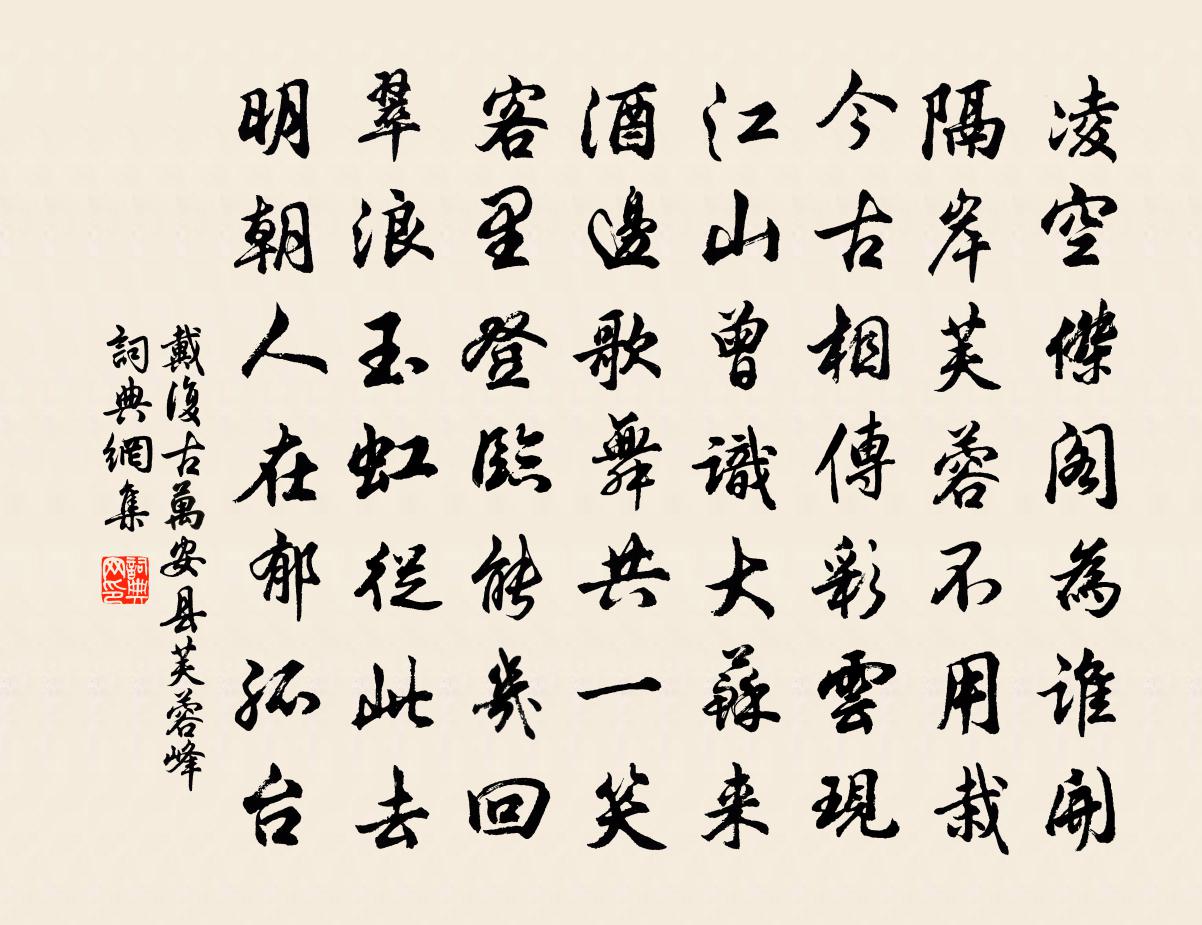 凌空傑阁為谁開
隔岸芙蓉不用栽
今古相傳彩雲現
江山曾識大蘇来
酒邊歌舞共一笑
客里登臨能幾回
翠浪玉虹從此去
明朝人在郁孤台
戴復古萬安县芙蓉峰
詞典網集
詞典网印